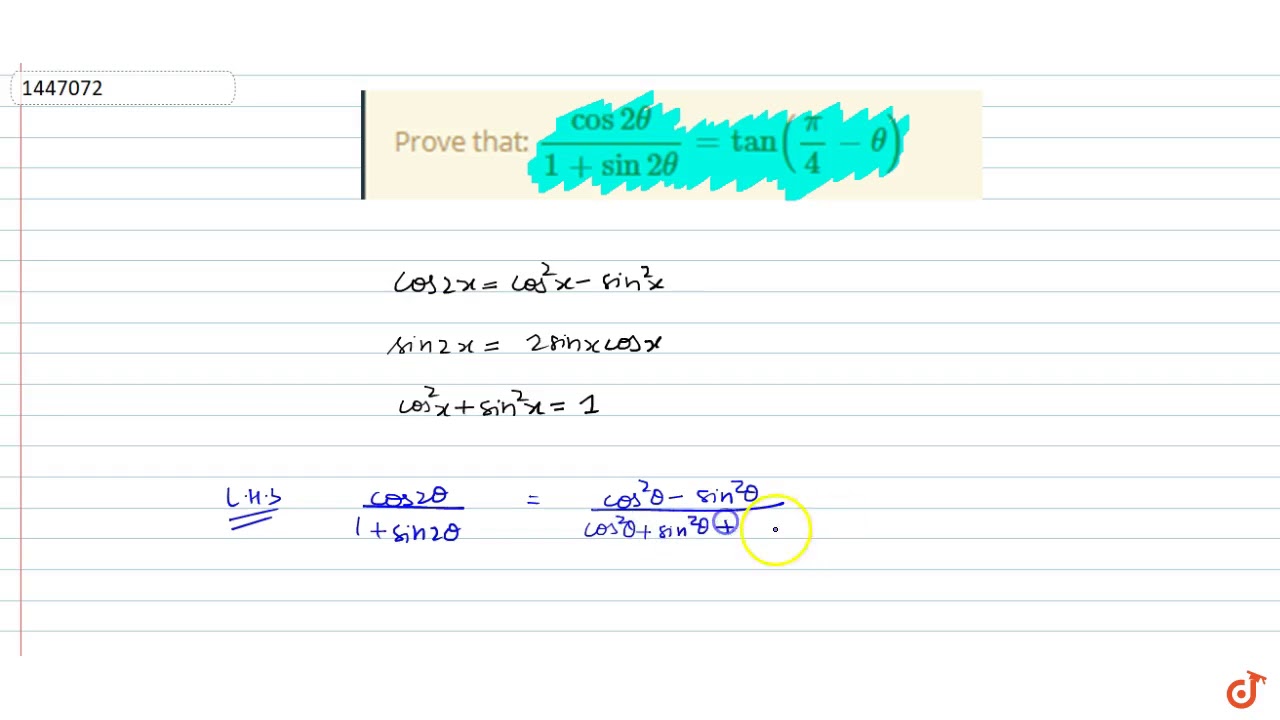 1447072
Prove that: cos 2θ / 1 + sin 2θ = tan(π/4 − θ)
cos2x = cos²x − sin²x
sin2x = 2sinxcosx
cos²x + sin²x = 1
L.H.S cos2θ / 1 + sin2θ = cos²θ − sin²θ / cos²θ + sin²θ +